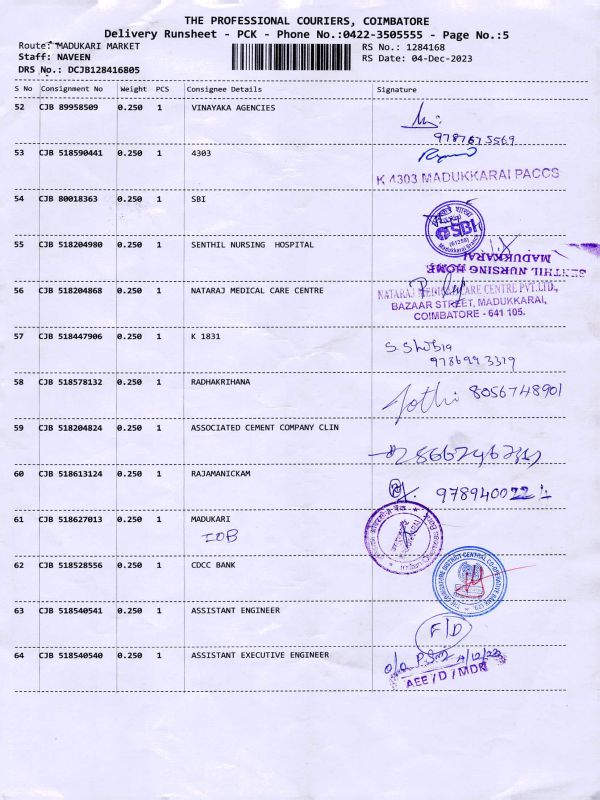 THE PROFESSIONAL COURIERS, COIMBATORE
Delivery Runsheet - PCK - Phone No.:0422-3505555 - Page No.:5
Route: MADUKARI MARKET RS No.: 1284168
Staff: NAVEEN RS Date: 04-Dec-2023
DRS No.: DCJB128416805
S No Consignment No Weight PCS Consignee Details Signature
52 CJB 89958509 0.250 1 VINAYAKA AGENCIES
9787675569
53 CJB 518590441 0.250 1 4303
K 4303 MADUKKARAI PACCS
54 CJB 80018363 0.250 1 SBI
SBI
55 CJB 518204980 0.250 1 SENTHIL NURSING HOSPITAL
SENTHIL NURSING HOME
MADUKKARAI
56 CJB 518204868 0.250 1 NATARAJ MEDICAL CARE CENTRE
NATARAJ MEDICAL CARE CENTRE PVT.LTD.,
BAZAAR STREET, MADUKKARAI,
COIMBATORE - 641 105.
57 CJB 518447906 0.250 1 K 1831
58 CJB 518578132 0.250 1 RADHAKRIHANA
Jothi 8056748901
59 CJB 518204824 0.250 1 ASSOCIATED CEMENT COMPANY CLIN
60 CJB 518613124 0.250 1 RAJAMANICKAM
61 CJB 518627013 0.250 1 MADUKARI
IOB
62 CJB 518528556 0.250 1 CDCC BANK
63 CJB 518540541 0.250 1 ASSISTANT ENGINEER
F/D
64 CJB 518540540 0.250 1 ASSISTANT EXECUTIVE ENGINEER
AEE / D / MDK